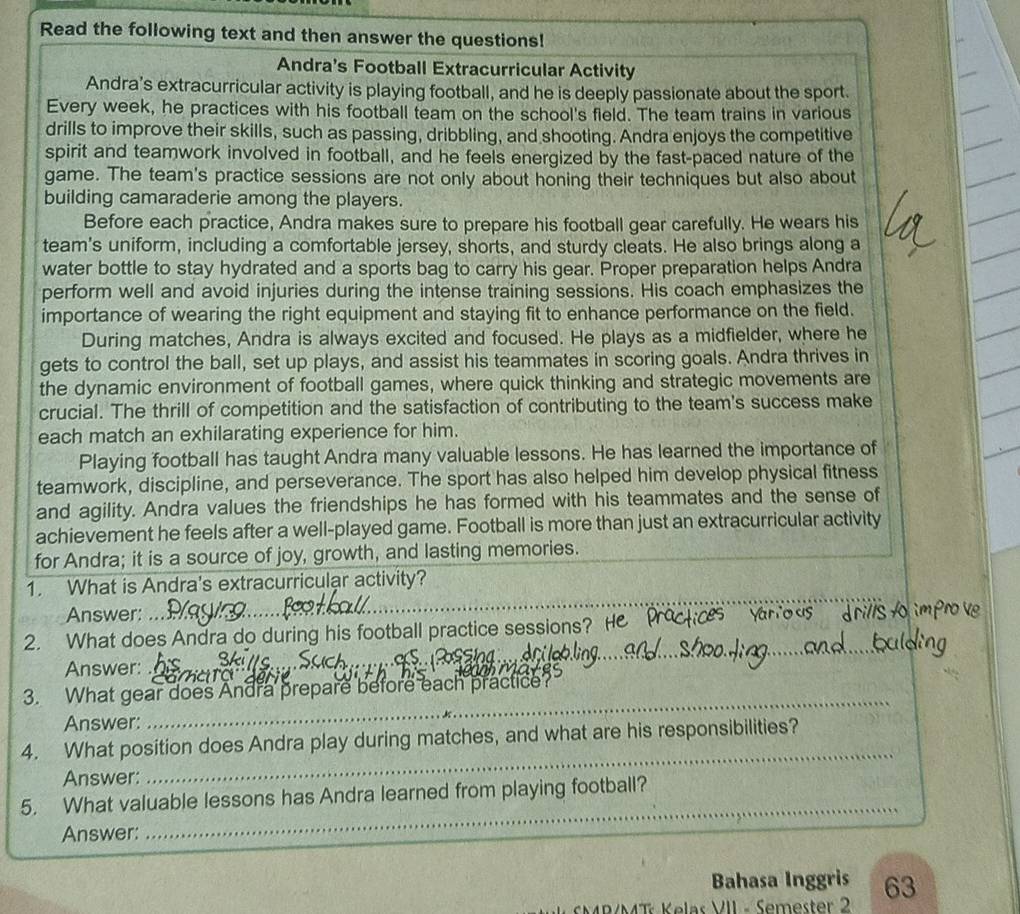 Read the following text and then answer the questions!
Andra's Football Extracurricular Activity
Andra's extracurricular activity is playing football, and he is deeply passionate about the sport.
Every week, he practices with his football team on the school's field. The team trains in various
drills to improve their skills, such as passing, dribbling, and shooting. Andra enjoys the competitive
spirit and teamwork involved in football, and he feels energized by the fast-paced nature of the
game. The team's practice sessions are not only about honing their techniques but also about
building camaraderie among the players.
Before each practice, Andra makes sure to prepare his football gear carefully. He wears his
team's uniform, including a comfortable jersey, shorts, and sturdy cleats. He also brings along a
water bottle to stay hydrated and a sports bag to carry his gear. Proper preparation helps Andra
perform well and avoid injuries during the intense training sessions. His coach emphasizes the
importance of wearing the right equipment and staying fit to enhance performance on the field.
During matches, Andra is always excited and focused. He plays as a midfielder, where he
gets to control the ball, set up plays, and assist his teammates in scoring goals. Andra thrives in
the dynamic environment of football games, where quick thinking and strategic movements are
crucial. The thrill of competition and the satisfaction of contributing to the team's success make
each match an exhilarating experience for him.
Playing football has taught Andra many valuable lessons. He has learned the importance of
teamwork, discipline, and perseverance. The sport has also helped him develop physical fitness
and agility. Andra values the friendships he has formed with his teammates and the sense of
achievement he feels after a well-played game. Football is more than just an extracurricular activity
for Andra; it is a source of joy, growth, and lasting memories.
1. What is Andra's extracurricular activity?
Answer: Playing football
2. What does Andra do during his football practice sessions? He practices various drills to improve
Answer: his skills such as passing driblobling and shooting and bulding
camara derie with his teammates
3. What gear does Andra prepare before each practice?
Answer:
4. What position does Andra play during matches, and what are his responsibilities?
Answer:
5. What valuable lessons has Andra learned from playing football?
Answer:
Bahasa Inggris 63
SMP/MTs Kelas VII - Semester 2